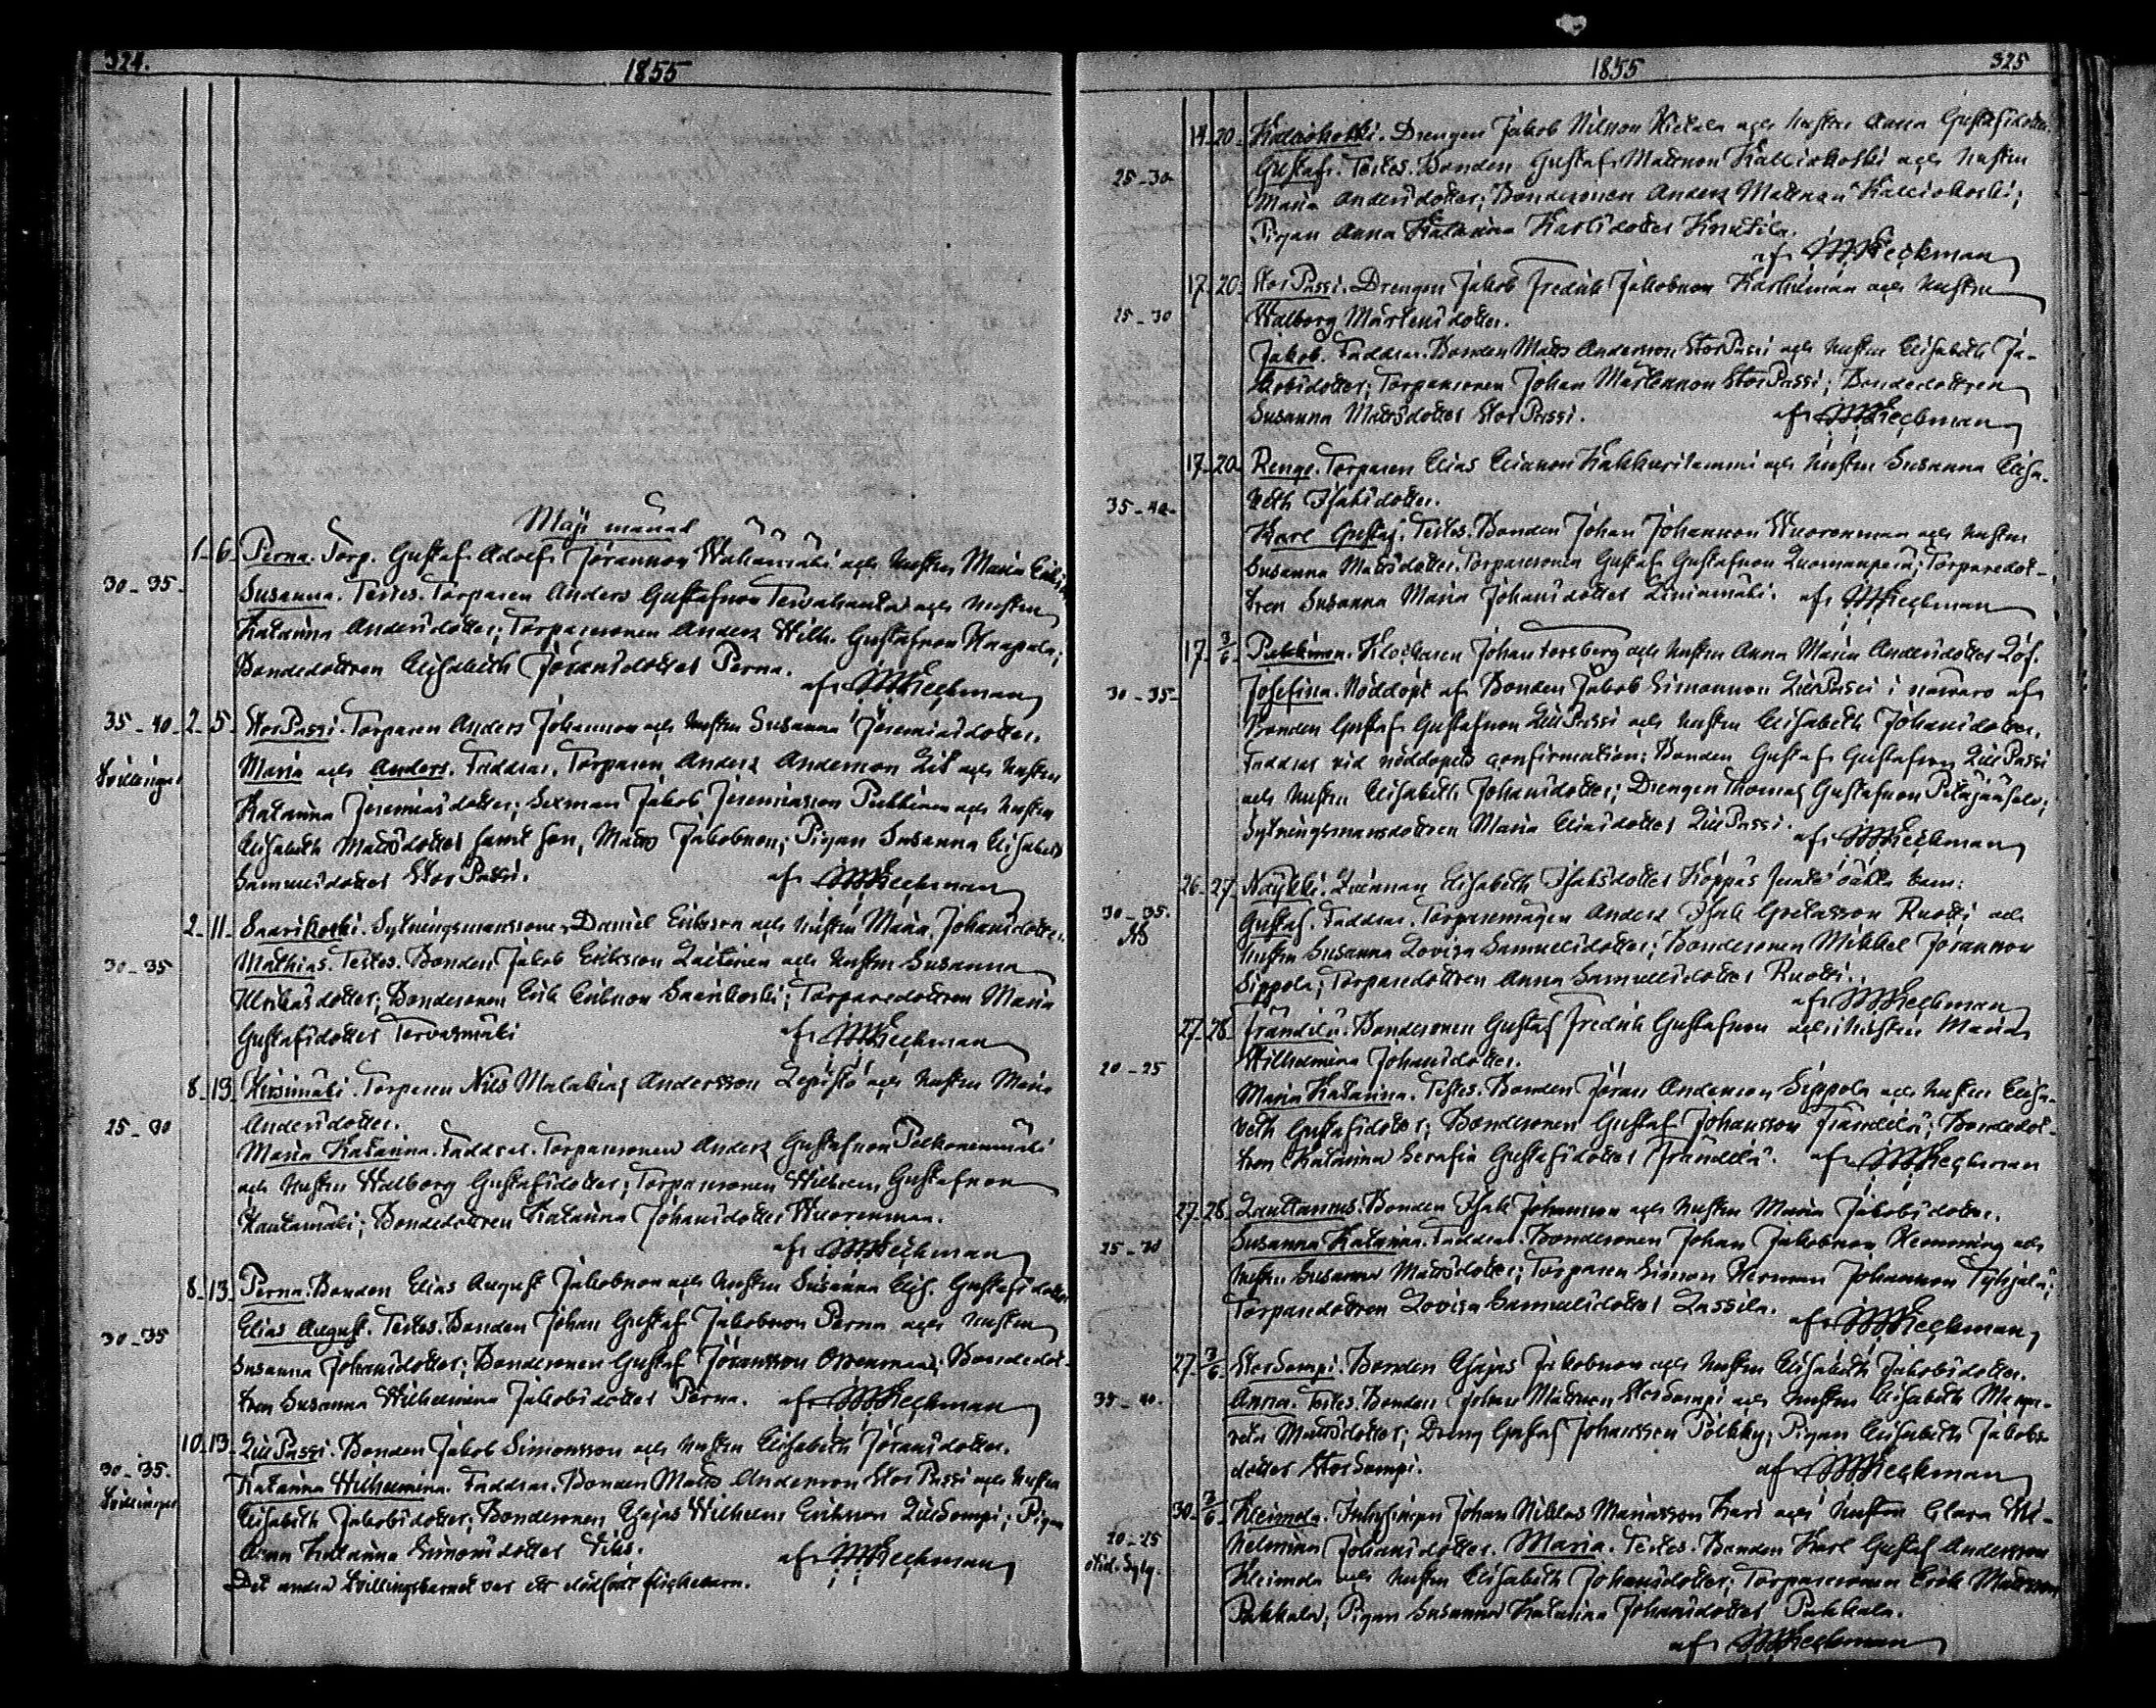 324.
1855
Maji månad
1-6- Perna. Torp. Gustaf Adolf Jöransson Wahamäki och hustru Maria
30-35- Susanna. Testes. Torparen Anders Gustafsson Tervahauta och hustru
Katarina Andersdotter; Torparesonen Anders Wilh. Gustafsson Haapala;
Bondedottren Elisabeth Jöransdotter Perna. af HHeckman
35-40-2-5- StorPassi. Torparen Anders Johansson och hustru Susanna Jeremiasdotter.
Tvillingar Maria och Anders. Faddrar. Torparen Anders Andersson och hustru
Katarina Jeremiasdotter; Sexman Jakob Jeremiasson Pukkinen och hustru
Elisabeth Matsdotter samt son, Mats Jakobsson; Pigan Susanna Elisabeth
Samuelsdotter StorPassi. af HHeckman
2-11- Saarikoski. Sytningsmanssonen Daniel Eriksson och hustru Maria Johansdotter.
30-35 Mathias. Testes. Bonden Jakob Eriksson Laitinen och hustru Susanna
Ulrikasdotter; Bondesonen Erik Eriksson Saarikoski; Torparedottren Maria
Gustafsdotter Tervasmäki af HHeckman
8-13- Hirsimäki. Torparen Nils Malakias Andersson Lepistö och hustru Maria
Andersdotter.
25-30 Maria Katarina. Faddrar. Torparesonen Anders Gustafsson Polkonenmäki
och hustru Walborg Gustafsdotter; Torparesonen Wilhelm Gustafsson
Hautamäki; Bondedottren Katarina Johansdotter Wuorenmaa.
af HHeckman
8-13- Perna. Bonden Elias August Jakobsson och hustru Susanna Elis. Gustafsdotter
30-35 Elias August. Testes. Bonden Johan Gustaf Jakobsson Perna och hustru
Susanna Johansdotter; Bondesonen Gustaf Jöransson; Bondedot-
tren Susanna Wilhelmina Jakobsdotter Perna. af HHeckman
10-13- LillPassi. Bonden Jakob Simonsson och hustru Elisabeth Jöransdotter.
30-35. Tvillingar Katarina Wilhelmina. Faddrar. Bonden Mats Andersson StorPassi och hustru
Elisabeth Jakobsdotter; Bondesonen Esajas Wilhelm Eriksson LillSompi; Pigan
Anna Katarina Simonsdotter. af HHeckman
Det andra tvillingsbarnet var ett dödfödt flickebarn.
1855
325
14-20- Kalliokoski. Drengen Jakob Nilsson Hietala och hustru Anna Gustafsdotter.
25-30 Gustaf. Testes. Bonden Gustaf Matsson Kalliokoski och hustru
Maria Andersdotter; Bondesonen Anders Matsson Kalliokoski;
Pigan Anna Katarina Karlsdotter Knutila.
af HHeckman
17-20- StorPassi. Drengen Jakob Fredrik Jakobsson Karhumaa och hustru
25-30 Walborg Mårtensdotter.
Jakob. Faddrar. Bonden Mats Andersson StorPassi och hustru Elisabeth Ja-
kobsdotter; Torparesonen Johan Mårtensson StorPassi; Bondedottren
Susanna Matsdotter StorPassi. af HHeckman
17-20- Rengo. Torparen Elias Eliasson Kakkurilammi och hustru Susanna Elisa-
35-40- beth Isaksdotter.
Karl Gustaf. Testes. Bonden Johan Johansson Wuorenmaa och hustru
Susanna Matsdotter. Torparesonen Gustaf Gustafsson Luomanperä; Torparedot-
tren Susanna Maria Johansdotter. af HHeckman
17-3/6- Pukkinen. Klockaren Johan Forsberg och hustru Anna Maria Andersdotter Löf.
30-35- Josefina. Nöddöpt af Bonden Jakob Simonsson LillPassi i närvaro af
Bonden Gustaf Gustafsson LillPassi och hustru Elisabeth Johansdotter.
Faddrar vid nöddopets confirmation: Bonden Gustaf Gustafsson LillPassi
och hustru Elisabeth Johansdotter; Drengen Thomas Gustafsson;
Sytningsmansdottren Maria Eliasdotter LillPassi. af HHeckman
26-27- Näykki. Quinnan Elisabeth Isaksdotter Koppas oäkta barn:
30-35. Gustaf. Faddrar. Torparemågen Anders Isak Gretasson Ruotsi och
hustru Susanna Lovisa Samuelsdotter; Bondesonen Mikkel Jöransson
Sippola; Torparedottren Anna Samuelsdotter Ruotsi.
af HHeckman
27-28 Frändilä. Bondesonen Gustaf Fredrik Gustafsson och hustru Maria
20-25 Wilhelmina Johansdotter.
Maria Katarina. Testes. Bonden Jöran Andersson Sippola och hustru Elisa-
beth Gustafsdotter; Bondesonen Gustaf Johansson Frändilä; Bondedot-
tren Katarina Serafia Gustafsdotter Frändilä. af HHeckman
27-28- Lauttamus. Bonden Isak Johansson och hustru Maria Jakobsdotter.
25-30 Susanna Katarina. Faddrar. Bondesonen Johan Jakobsson Hemming och
hustru Susanna Matsdotter; Torparen Simon Herman Johansson Tyhjälä;
Torparedottren Lovisa Samuelsdotter Lassila. af HHeckman
27-3/6- StorSompi. Bonden Esajas Jakobsson och hustru Elisabeth Jakobsdotter.
35-40. Anna. Testes. Bonden Johan Matsson StorSompi och hustru Elisabeth Marga-
reta Matsdotter; Dreng Gustaf Johansson Pölkky; Pigan Elisabeth Jakobs-
dotter StorSompi. af HHeckman
30-3/6- Kleimola. Inhysingen Johan Niklas Mariasson Kari och hustru Clara Wil-
20-25 helmina Johansdotter. Maria. Testes. Bonden Karl Gustaf Andersson
Kleimola och hustru Elisabeth Johansdotter; Torparesonen Erik Matsson
Pukkala; Pigan Susanna Katarina Johansdotter Pukkala.
af HHeckman